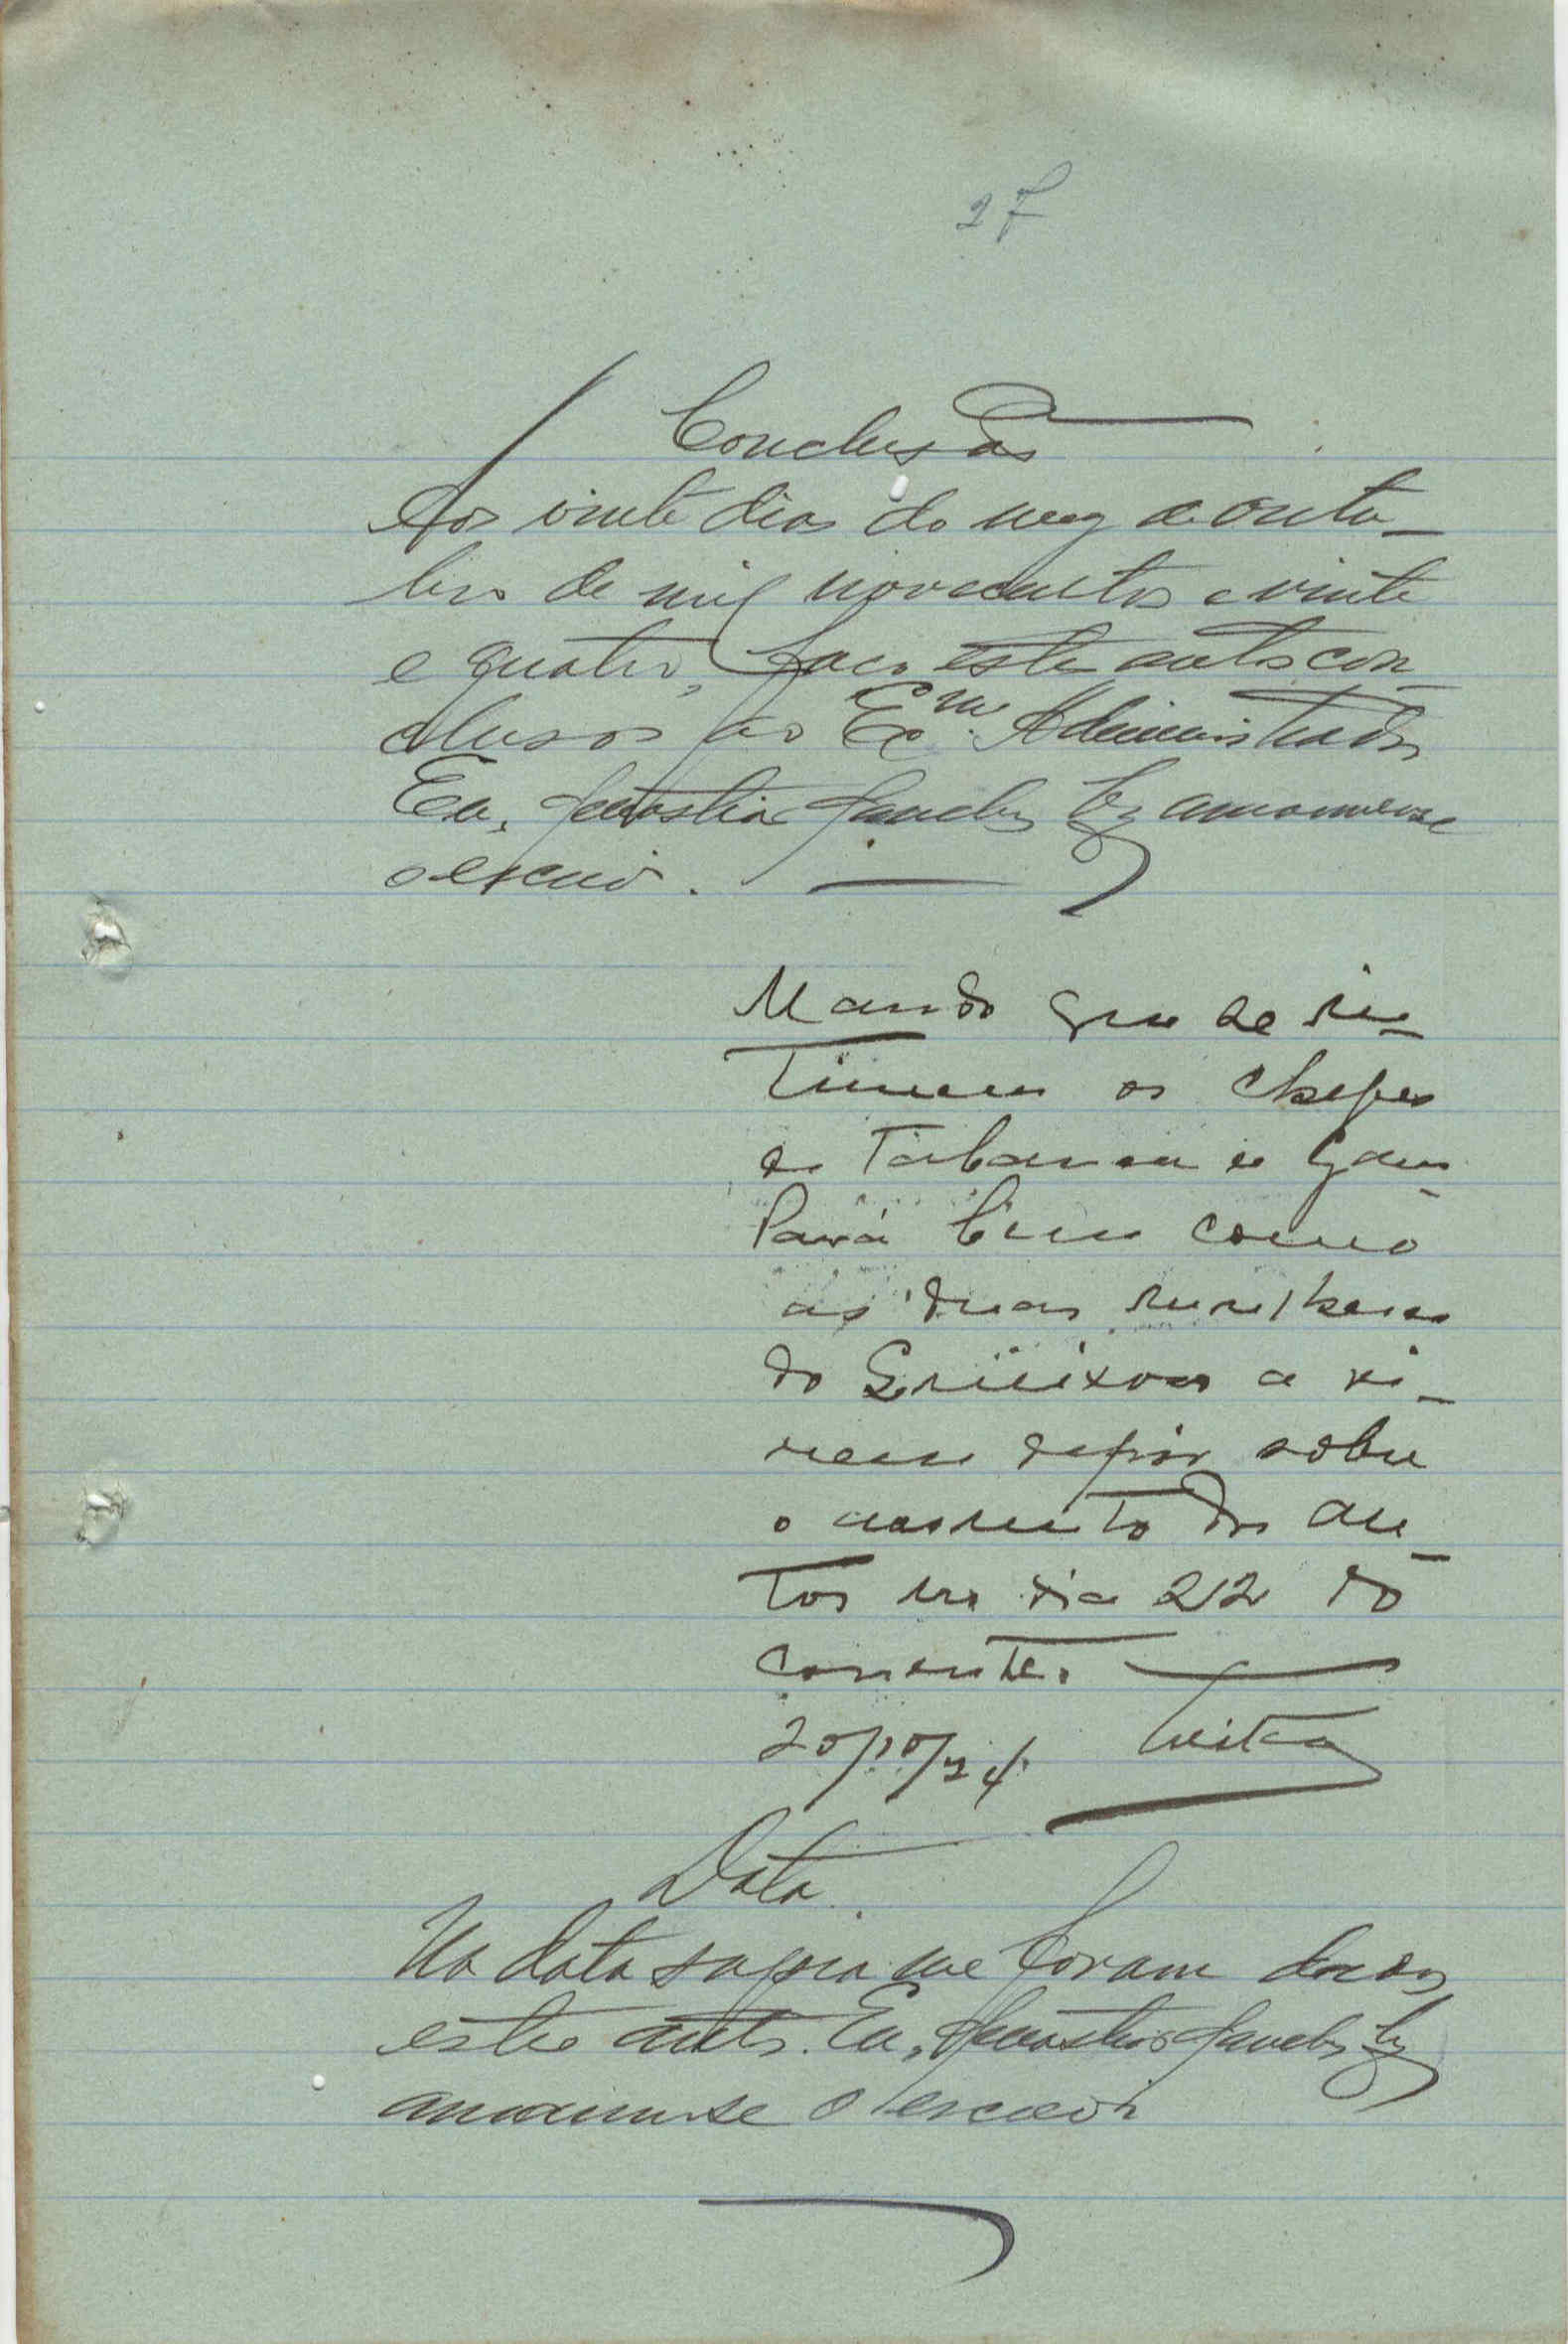 27
Conclusão
Aos vinte dias do mez de outu-
bro de mil novecentos e vinte
e quatro, faço estes autos con-
clusos ao Exmº. Administrador
Eu, Sanches amanuense
o escrevi.
Mando que se in-
timem os chefes
de Tabanca de Gam-
Pará bem como
as duas mulheres
do a vi-
rem depôr sobre
o assunto dos au-
tos no dia 22 do
corrente.
20/10/24.
Data.
Na data supra me foram dados
estes autos. Eu, Sanches
amanuense o escrevi